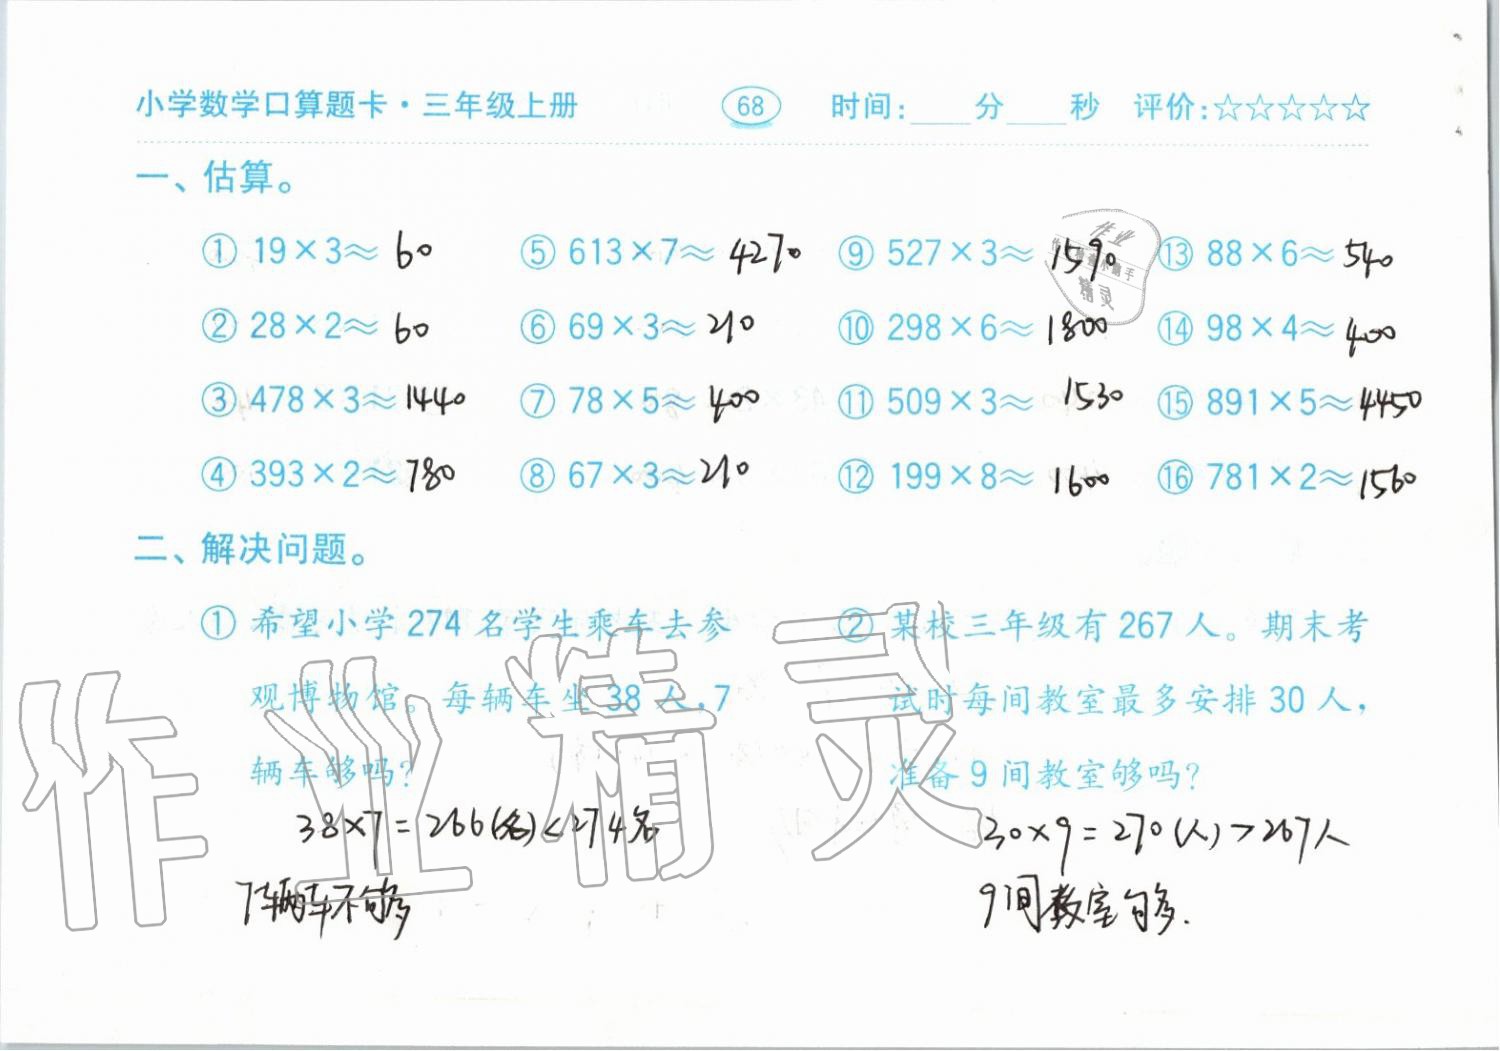 小学数学口算题卡·三年级上册 68 时间:____分____秒 评价:☆☆☆☆☆
一、估算。
① 19×3≈ 60 ⑤ 613×7≈ 4270 ⑨ 527×3≈ 1590 ⑬ 88×6≈ 540
② 28×2≈ 60 ⑥ 69×3≈ 210 ⑩ 298×6≈ 1800 ⑭ 98×4≈ 400
③ 478×3≈ 1440 ⑦ 78×5≈ 400 ⑪ 509×3≈ 1530 ⑮ 891×5≈ 4450
④ 393×2≈ 780 ⑧ 67×3≈ 210 ⑫ 199×8≈ 1600 ⑯ 781×2≈ 1560
作业
精灵
二、解决问题。
① 希望小学 274 名学生乘车去参
观博物馆。每辆车坐 38 人,7
辆车够吗?
38×7=266(名)<274名
7辆车不够
② 某校三年级有 267 人。期末考
试时每间教室最多安排 30 人,
准备 9 间教室够吗?
30×9=270(人)>267人
9间教室够.
作业精灵